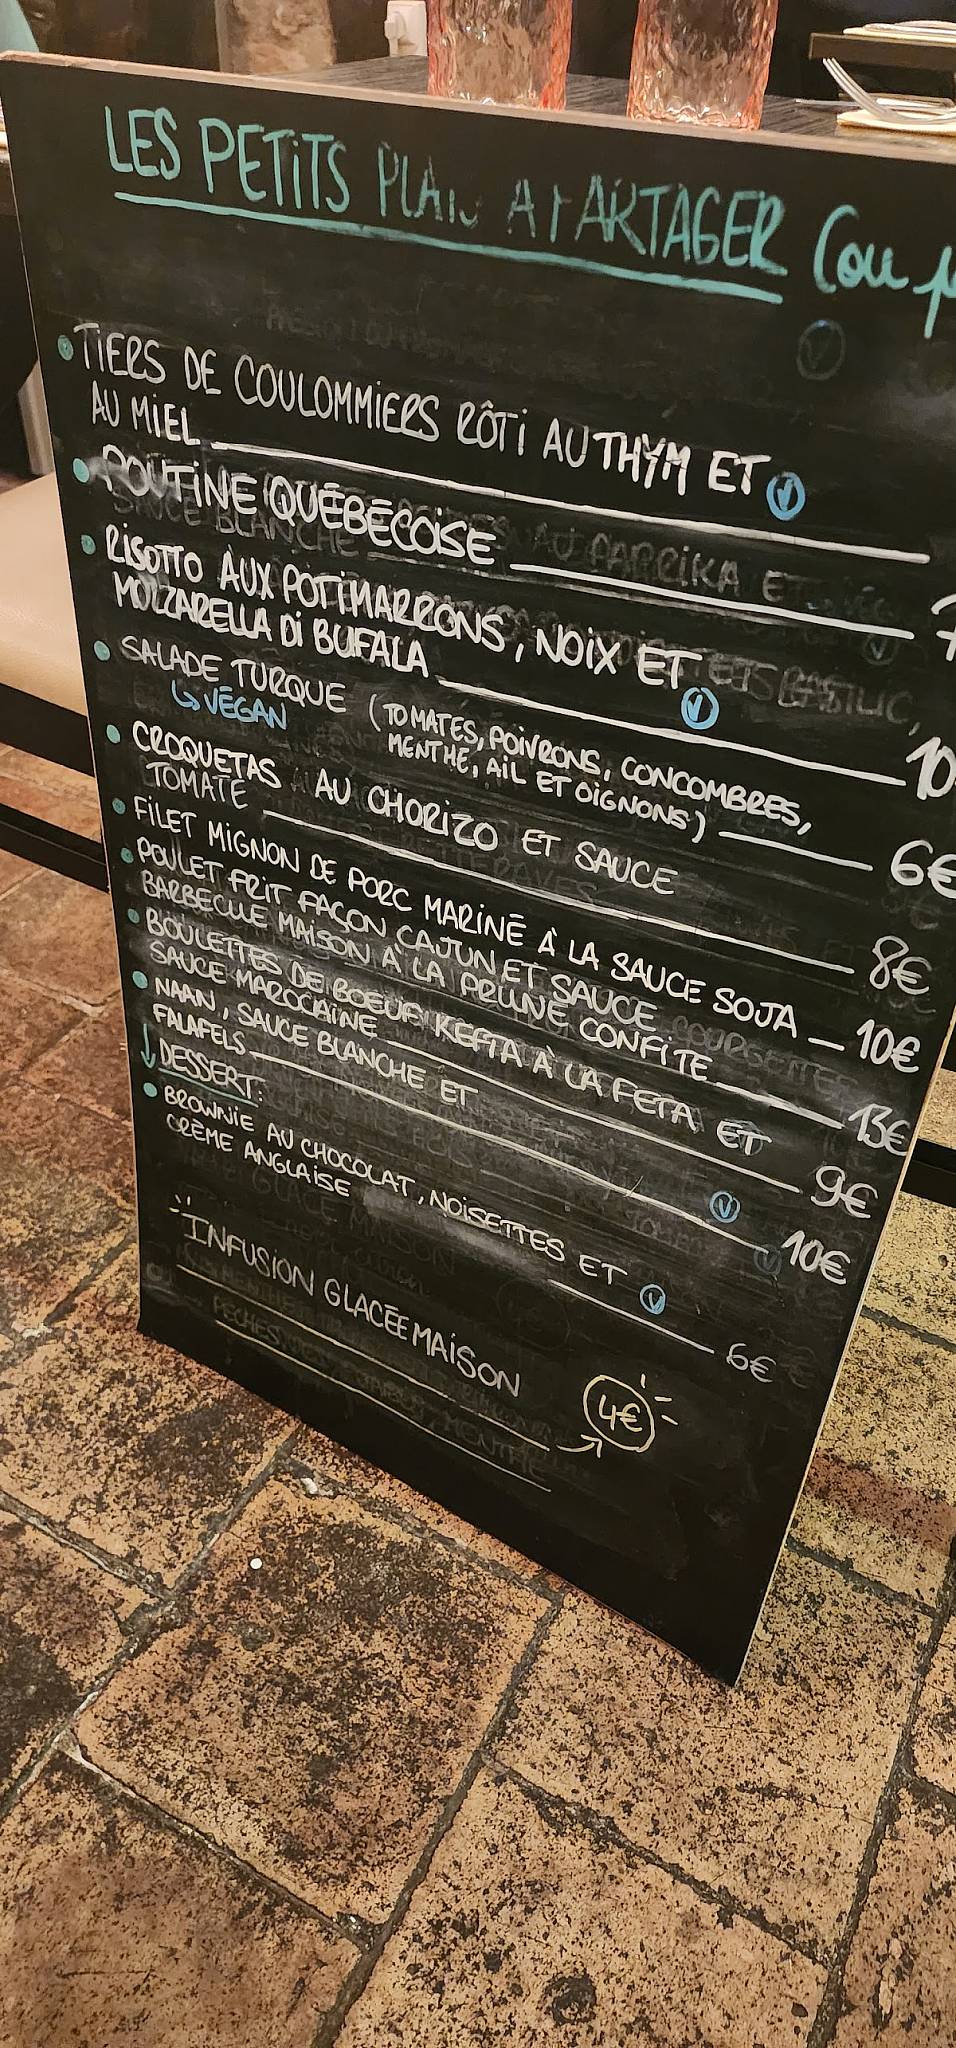 LES PETITS PLATS A PARTAGER (ou
• TIERS DE COULOMMIERS RÔTI AU THYM ET Ⓥ
AU MIEL
• POUTINE QUÉBÉCOISE 7
• RISOTTO AUX POTIMARRONS, NOIX ET
MOZZARELLA DI BUFALA Ⓥ 10
• SALADE TURQUE (TOMATES, POIVRONS, CONCOMBRES,
↳ VÉGAN MENTHE, AIL ET OIGNONS) 6€
• CROQUETAS AU CHORIZO ET SAUCE
TOMATE 8€
• FILET MIGNON DE PORC MARINÉ À LA SAUCE SOJA 10€
• POULET FRIT FAÇON CAJUN ET SAUCE
BARBECUE MAISON À LA PRUNE CONFITE 13€
• BOULETTES DE BOEUF KEFTA À LA FETA ET
SAUCE MAROCAINE 9€
• NAAN, SAUCE BLANCHE ET
FALAFELS Ⓥ 10€
↓ DESSERT:
• BROWNIE AU CHOCOLAT, NOISETTES ET
CRÈME ANGLAISE Ⓥ 6€
INFUSION GLACÉE MAISON
4€